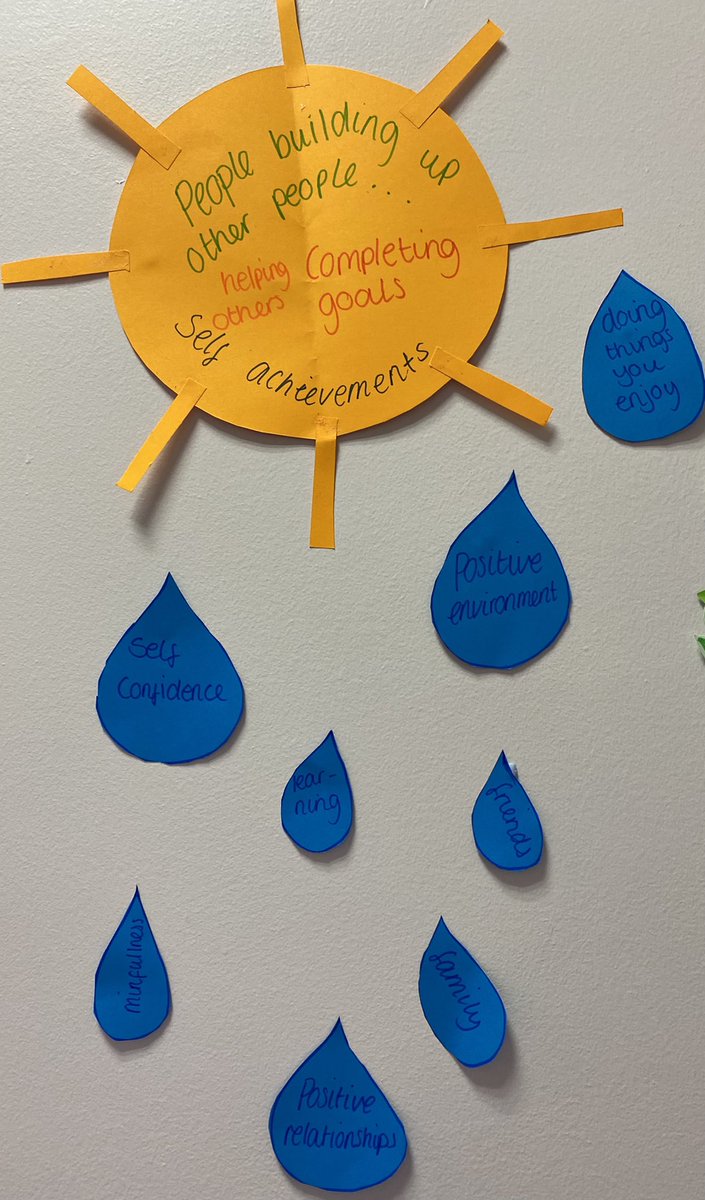 People building up
other people...
helping Completing
others goals
Self achievements
doing
things
you
enjoy
Positive
environment
Self
Confidence
lear-
ning
friends
minfullness
family
Positive
relationships